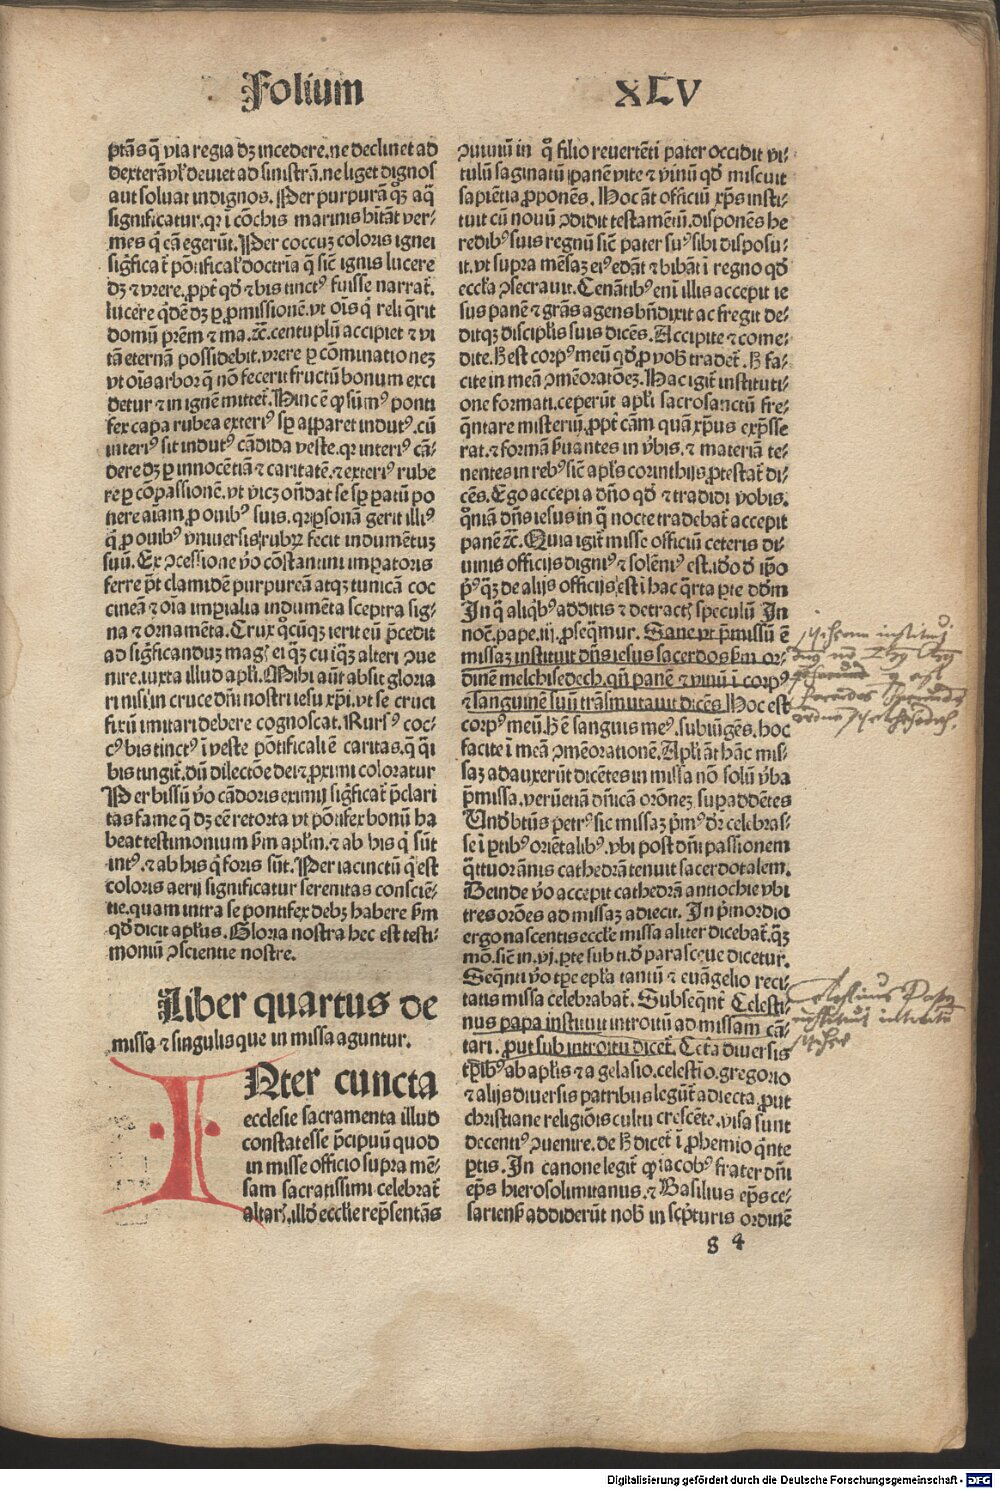 Folium XLV
ptãs q̃ via regia dʒ incedere.ne declinet ad
dexterã vl' deviet ad sinistrã.ne liget dignos
aut soluat indignos. Per purpurã q̃ʒ aq̃
significatur.qꝛ ĩ cõchis marinis hitãt ver⸗
mes q̃ cã egerũt. Per coccuʒ coloris ignei
sig̃ficat̃ põtifical' doctrĩa q̃ sic̃ ignis lucere
dʒ ⁊ vrere.ꝓpt̃ qď ⁊ bis tinctꝰ fuisse narrat̃.
lucere qďẽ dʒ ꝑ ꝓmissionẽ.vt oĩs q̃ reliq̃rit
domũ pr̃em ⁊ ma.⁊c̃.centuplũ accipiet ⁊ vi
tã eternã possidebit.vrere ꝑ cõminationeʒ
vt oĩs arbor q̃ nõ fecerit fructũ bonum exci
detur ⁊ in ignẽ mittet̃. Hinc ẽ ꝙ sũmꝰ ponti
fex capa rubea exteriꝰ sꝑ apparet indutꝰ.cũ
interiꝰ sit indutꝰ cãdida veste.qꝛ interiꝰ cã⸗
dere dʒ ꝑ innocẽtiã ⁊ caritatẽ.⁊ exteriꝰ rube
re ꝑ cõpassionẽ.vt vicʒ oñdat se sꝑ patũ po
nere aiam ꝓ ouibꝰ suis.qꝛ ꝑsonã gerit illiꝰ
q̃ ꝓ ouibꝰ vniuersis rubꝝ fecit indumẽtuʒ
suũ. Ex ꝯcessione ṽo cõstantini imꝑatoris
ferre p̃t clamidẽ purpureã atqʒ tunicã coc
cineã ⁊ oĩa imꝑialia indumẽta sceptra sig⸗
na ⁊ ornamẽta. Crux q̃cũqʒ ierit eũ p̃cedit
ad significanduʒ mag̃ eiqʒ cuiq̃ʒ alteri ꝯue
nire.iuxta illud apl'i. Mihi aũt absit gloria
ri nisi in cruce dñi nostri iesu xp̃i.vt se cruci
fixũ imitari debere cognoscat. Rursꝰ coc⸗
cꝰ bis tinctꝰ ĩ veste põtificali ẽ caritas.q̃ q̃i
bis tingit̃.dũ dilectõe dei ⁊ ꝓximi coloratur
Per bissũ ṽo cãdoris eximij sig̃ficat̃ p̃clari
tas fame q̃ dʒ eẽ retorta vt põtifex bonũ ha
beat testimonium s̃m apl'm.⁊ ab his q̃ sũt
intꝰ.⁊ ab his q̃ foris sũt. Per iacinctũ q̃ est
coloris aerij significatur serenitas consciẽ⸗
tie.quam intra se pontifex debʒ habere s̃m
qď dicit apl'us. Gloria nostra hec est testi⸗
moniũ ꝯscientie nostre.
Liber quartus de
missa ⁊ singulis que in missa aguntur.
INter cuncta
ecclesie sacramenta illud
constat esse p̃cipuũ quod
in misse officio supra mẽ⸗
sam sacratissimi celebrat̃
altar̃.illď eccl'ie rep̃sentãs
ꝯuiuiũ in q̃ filio reuertẽti pater occidit vi⸗
tulũ saginatũ panẽ vite ⁊ vinũ qď miscuit
sapiẽtia ꝓponẽs. Hoc ãt officiũ xp̃s insti⸗
tuit cũ nouũ ꝯdidit testamẽtũ.disponẽs he
redibꝰ suis regnũ sic̃ pater suꝰ sibi disposu⸗
it.vt supra mẽsaʒ eiꝰ edãt ⁊ bibãt ĩ regno qď
eccl'a ꝯsecrauit. Cenãtibꝰ eni illis accepit ie
sus panẽ ⁊ gr̃as agens bñdixit ac fregit de⸗
ditqʒ discipl'is suis dicẽs. Accipite ⁊ come⸗
dite. H̃ est corpꝰ meũ qď ꝓ vob̃ tradet̃. H̃ fa⸗
cite in meã ꝯmẽoratõeʒ. Hac igit̃ instituti⸗
one formati.ceperũt apl'i sacrosanctũ fre⸗
q̃ntare misteriũ.ꝓpt̃ cãm quã xp̃us exp̃sse
rat.⁊ formã s̃uantes in ṽbis.⁊ materiã te⸗
nentes in rebꝰ sic̃ apl's corinthijs ꝓtestat̃ di⸗
cẽs. Ego accepi a dño qď ⁊ tradidi vobis.
q̃niã dñs iesus in q̃ nocte tradebat̃ accepit
panẽ ⁊c̃. Quia igit̃ misse officiũ ceteris di⸗
uinis officijs digniꝰ ⁊ solẽniꝰ est.iďo ď ip̃o
pꝰ q̃ʒ de alijs officijs est ĩ hac q̃rta ꝑte ďďm
In q̃ aliq̃bꝰ additis ⁊ detract̃ speculũ In
noc̃.pape.iij.ꝓseq̃mur. Sane vt p̃missũ ẽ
missaʒ instituit dñs iesus sacerdos s̃m or⸗
dinẽ melchisedech.qñ panẽ ⁊ vinũ ĩ corpꝰ
⁊ sanguinẽ suũ trãsmutauit dicẽs Hoc est
corpꝰ meũ. H̃ ẽ sanguis meꝰ.subiũgẽs.hoc
facite ĩ meã ꝯmẽorationẽ. Apl'i ãt hãc mis⸗
saʒ adauxerũt dicẽtes in missa nõ solũ ṽba
p̃missa.verũetiã dñicã orõneʒ suꝑaddẽtes
Unď btũs petrꝰ sic missaʒ p̃mꝰ ďr celebras⸗
se ĩ ꝑtibꝰ oriẽtalibꝰ.vbi post dñi passionem
q̃tuor ãnis cathedrã tenuit sacerdotalem.
Deinde ṽo accepit cathedrã antiochie vbi
tres orões ad missaʒ adiecit. In p̃mordio
ergo nascentis eccl'ie missa aliter dicebat̃.q̃ʒ
mõ.sic̃ in.vj.ꝑte sub ti.ď parasceue dicetur.
Seq̃nti ṽo tꝑe epl'a tantũ ⁊ euãgelio reci⸗
tatis missa celebrabat̃. Subseq̃nt̃ Celesti⸗
nus papa instituit introitũ ad missam cã⸗
tari.ꝓut sub introitu dicet̃. Cet̃a diuersis
tp̃ibꝰ ab apl'is ⁊ a gelasio.celestĩo.gregorio
⁊ alijs diuersis patribus legũt̃ adiecta.ꝓut
christiane religiõis cultu crescẽte.visa sunt
decentiꝰ ꝯuenire.de H̃ dicet̃ ĩ ꝓhemio q̃nte
ꝑtis. In canone legit̃ ꝙ iacobꝰ frater dñi
ep̃s hierosolimitanus.⁊ Basilius ep̃s ce⸗
sarienś addiderũt nob̃ in scp̃turis ordinẽ
g 4
Celestinus Papa
instituit introitũ
Digitalisierung gefördert durch die Deutsche Forschungsgemeinschaft - DFG